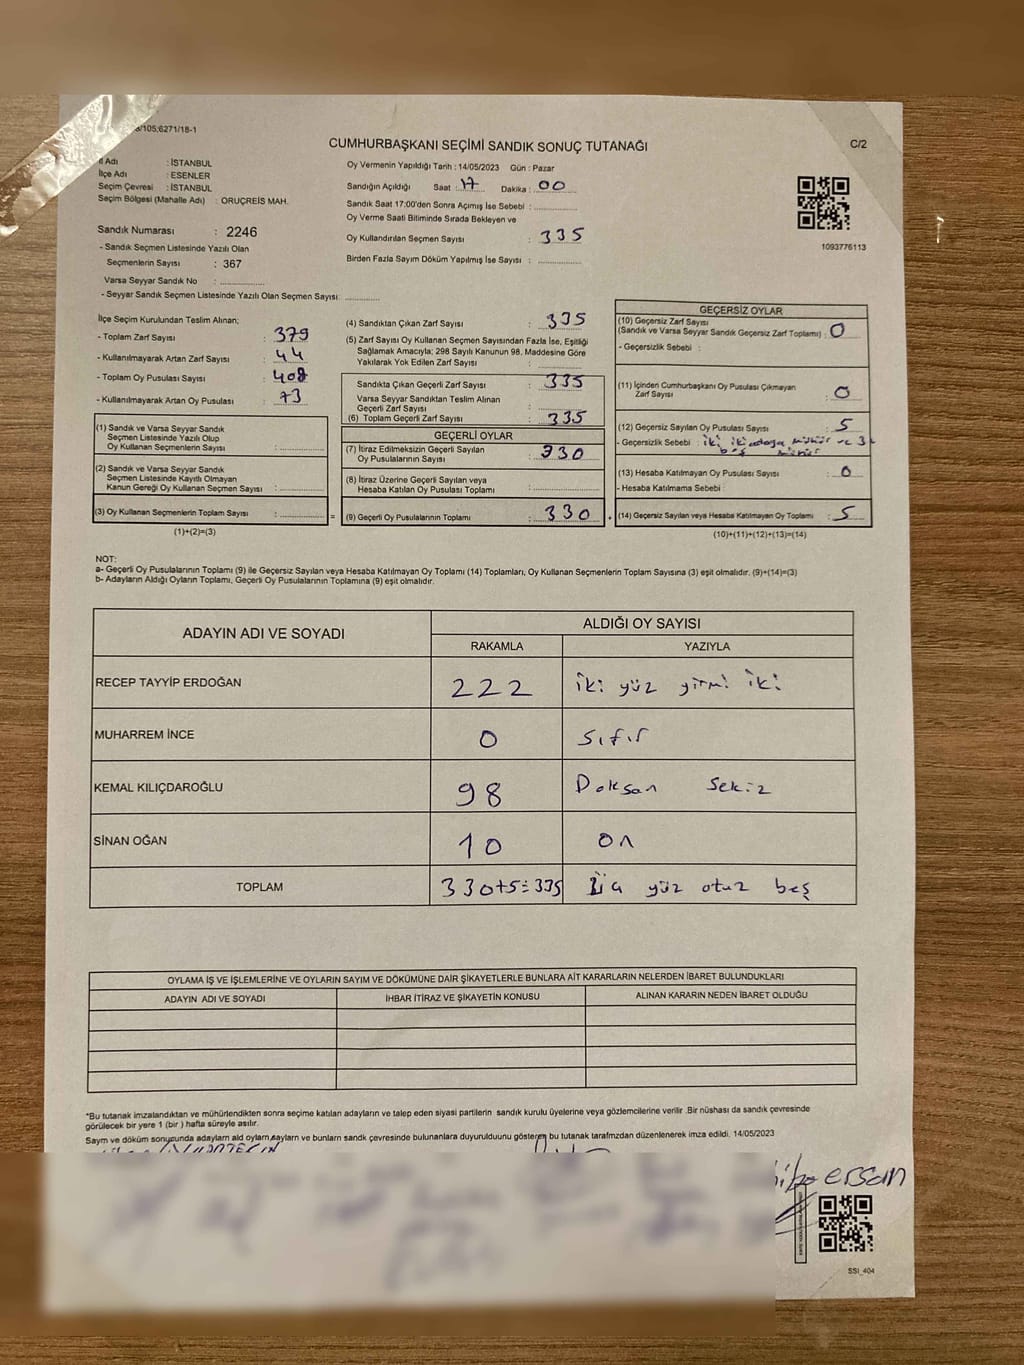 8/105;6271/18-1
CUMHURBAŞKANI SEÇİMİ SANDIK SONUÇ TUTANAĞI
C/2
İl Adı : İSTANBUL
İlçe Adı : ESENLER
Seçim Çevresi : İSTANBUL
Seçim Bölgesi (Mahalle Adı) : ORUÇREİS MAH.
Sandık Numarası : 2246
- Sandık Seçmen Listesinde Yazılı Olan
Seçmenlerin Sayısı : 367
Varsa Seyyar Sandık No :
- Seyyar Sandık Seçmen Listesinde Yazılı Olan Seçmen Sayısı:
Oy Vermenin Yapıldığı Tarih : 14/05/2023 Gün : Pazar
Sandığın Açıldığı Saat : 17 Dakika : 00
Sandık Saat 17:00'den Sonra Açımış İse Sebebi :
Oy Verme Saati Bitiminde Sırada Bekleyen ve
Oy Kullandırılan Seçmen Sayısı : 335
Birden Fazla Sayım Döküm Yapılmış İse Sayısı :
1093776113
İlçe Seçim Kurulundan Teslim Alınan;
- Toplam Zarf Sayısı : 379
- Kullanılmayarak Artan Zarf Sayısı : 44
- Toplam Oy Pusulası Sayısı : 408
- Kullanılmayarak Artan Oy Pusulası : 73
(1) Sandık ve Varsa Seyyar Sandık
Seçmen Listesinde Yazılı Olup
Oy Kullanan Seçmenlerin Sayısı :
(2) Sandık ve Varsa Seyyar Sandık
Seçmen Listesinde Kayıtlı Olmayan
Kanun Gereği Oy Kullanan Seçmen Sayısı :
(3) Oy Kullanan Seçmenlerin Toplam Sayısı :
(1)+(2)=(3)
(4) Sandıktan Çıkan Zarf Sayısı : 335
(5) Zarf Sayısı Oy Kullanan Seçmen Sayısından Fazla İse, Eşitliği
Sağlamak Amacıyla; 298 Sayılı Kanunun 98. Maddesine Göre
Yakılarak Yok Edilen Zarf Sayısı :
Sandıkta Çıkan Geçerli Zarf Sayısı : 335
Varsa Seyyar Sandıktan Teslim Alınan
Geçerli Zarf Sayısı :
(6) Toplam Geçerli Zarf Sayısı : 335
GEÇERLİ OYLAR
(7) İtiraz Edilmeksizin Geçerli Sayılan
Oy Pusulalarının Sayısı : 330
(8) İtiraz Üzerine Geçerli Sayılan veya
Hesaba Katılan Oy Pusulası Toplamı :
= (9) Geçerli Oy Pusulalarının Toplamı : 330
GEÇERSİZ OYLAR
(10) Geçersiz Zarf Sayısı
(Sandık ve Varsa Seyyar Sandık Geçersiz Zarf Toplamı) : 0
- Geçersizlik Sebebi :
(11) İçinden Cumhurbaşkanı Oy Pusulası Çıkmayan
Zarf Sayısı : 0
(12) Geçersiz Sayılan Oy Pusulası Sayısı : 5
- Geçersizlik Sebebi : iki iki adaya mühür ve 3
mühür
(13) Hesaba Katılmayan Oy Pusulası Sayısı : 0
- Hesaba Katılmama Sebebi :
+ (14) Geçersiz Sayılan veya Hesaba Katılmayan Oy Toplamı : 5
(10)+(11)+(12)+(13)=(14)
NOT:
a- Geçerli Oy Pusulalarının Toplamı (9) ile Geçersiz Sayılan veya Hesaba Katılmayan Oy Toplamı (14) Toplamları, Oy Kullanan Seçmenlerin Toplam Sayısına (3) eşit olmalıdır. (9)+(14)=(3)
b- Adayların Aldığı Oyların Toplamı, Geçerli Oy Pusulalarının Toplamına (9) eşit olmalıdır.
ADAYIN ADI VE SOYADI
ALDIĞI OY SAYISI
RAKAMLA YAZIYLA
RECEP TAYYİP ERDOĞAN 222 iki yüz yirmi iki
MUHARREM İNCE 0 sıfır
KEMAL KILIÇDAROĞLU 98 Doksan sekiz
SİNAN OĞAN 10 on
TOPLAM 330+5=335 Üç yüz otuz beş
OYLAMA İŞ VE İŞLEMLERİNE VE OYLARIN SAYIM VE DÖKÜMÜNE DAİR ŞİKAYETLERLE BUNLARA AİT KARARLARIN NELERDEN İBARET BULUNDUKLARI
ADAYIN ADI VE SOYADI İHBAR İTİRAZ VE ŞİKAYETİN KONUSU ALINAN KARARIN NEDEN İBARET OLDUĞU
*Bu tutanak imzalandıktan ve mühürlendikten sonra seçime katılan adayların ve talep eden siyasi partilerin sandık kurulu üyelerine veya gözlemcilerine verilir .Bir nüshası da sandık çevresinde
görülecek bir yere 1 (bir ) hafta süreyle asılır.
Sayım ve döküm sonucunda adayların aldı oyların,sayların ve bunların sandk çevresinde bulunanlara duyurulduunu gösteren bu tutanak tarafmzdan düzenlenerek imza edildi. 14/05/2023
ersan
SSI_404